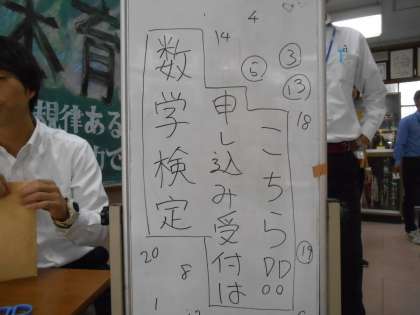 数学検定
申し込み受付は
こちら!!
4
14
③
⑤
⑬
18
⑲
20
8
1
木育
規律ある